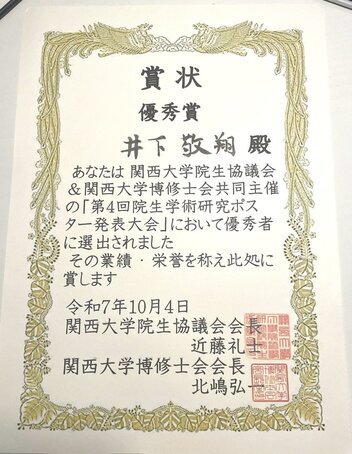 賞状
優秀賞
井下敬翔殿
あなたは関西大学院生協議会
＆関西大学博修士会共同主催
の「第4回院生学術研究ポス
ター発表大会」において優秀者
に選出されました
その業績・栄誉を称え此処に
賞します
令和7年10月4日
関西大学院生協議会会長
近藤礼士
関西大学博修士会会長
北嶋弘一